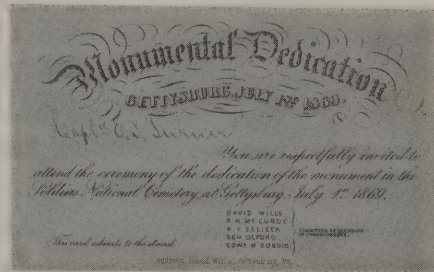 Monumental Dedication
GETTYSBURG, JULY 1ST 1869.
Capt. C. J. Turner
You are respectfully invited to
attend the ceremony of the dedication of the monument in the
Soldiers National Cemetery at Gettysburg, July 1st 1869.
DAVID WILLS
W. Y. SELLECK
EDWD M. DUBOIS
This card admits to the stand.
Address David Wills, Gettysburg, Pa.